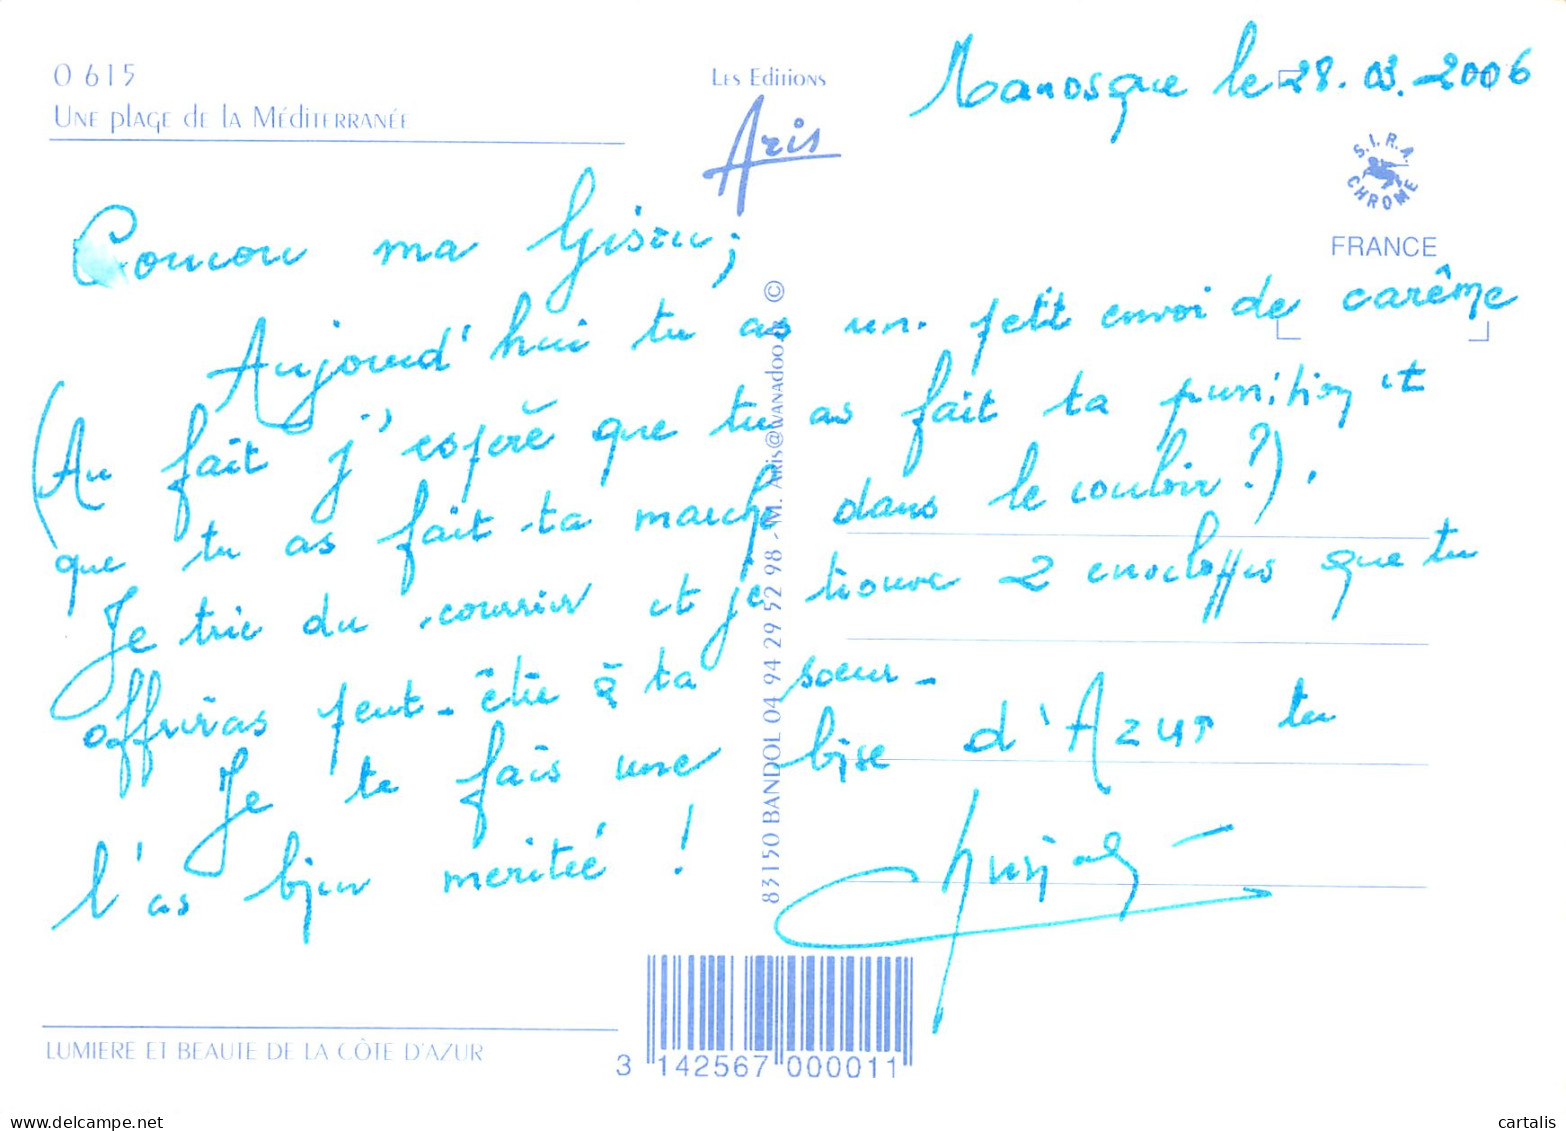 O 615
Une plage de la Méditerranée
Les Editions
Aris
Manosque le 28.03.2006
S.I.R.A.
CHROME
FRANCE
Coucou ma Gisou;
Aujourd'hui tu as un petit envoi de carême
(Au fait j'espère que tu as fait ta punition et
que tu as fait ta marche dans le couloir?).
Je trie du courrier et je trouve 2 envelopfes que tu
offriras peut-être à ta soeur-
Je te fais une bise d'Azur tu
l'as bien meritée !
83150 BANDOL 04 94 29 52 98 - M. Aris@wanadoo ©
LUMIERE ET BEAUTE DE LA CÔTE D'AZUR
3 142567 000011
www.delcampe.net
cartalis